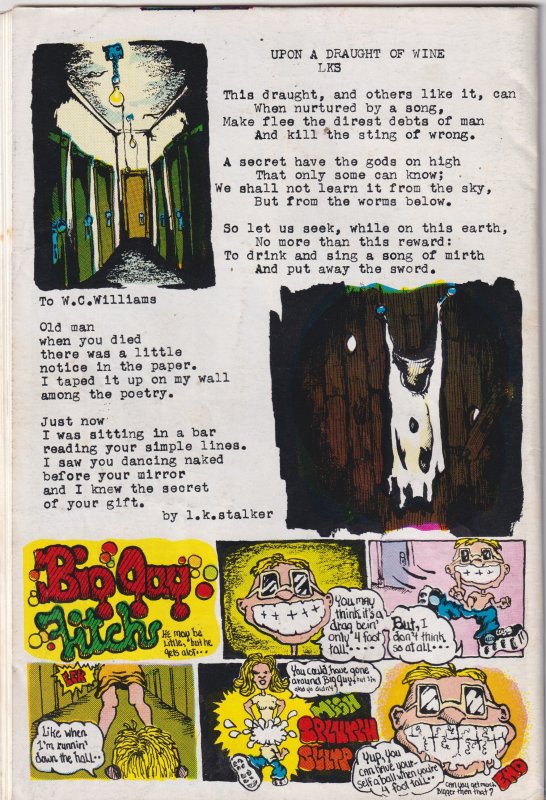 UPON A DRAUGHT OF WINE
LKS
This draught, and others like it, can
When nurtured by a song,
Make flee the direst debts of man
And kill the sting of wrong.
A secret have the gods on high
That only some can know;
We shall not learn it from the sky,
But from the worms below.
So let us seek, while on this earth,
No more than this reward:
To drink and sing a song of mirth
And put away the sword.
To W.C.Williams
Old man
when you died
there was a little
notice in the paper.
I taped it up on my wall
among the poetry.
Just now
I was sitting in a bar
reading your simple lines.
I saw you dancing naked
before your mirror
and I knew the secret
of your gift.
by l.k.stalker
Big Guy
Fitch
He may be
little, but he
gets alot...
You may
think it's a
drag bein'
only 4 foot
tall...
But, I
don't think
so at all...
Like when
I'm runnin'
down the hall..
You could have gone
around Big Guy, but I'm
glad ya didn't
Yup, you
can have your-
self a ball when you're
4 foot tall..
Can you get much
bigger then that?